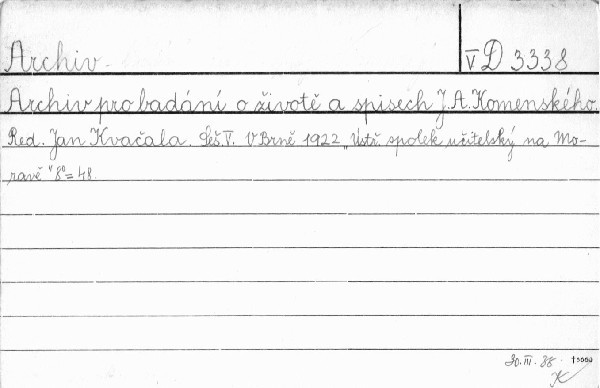 Archiv. V D 3338
Archiv pro badání o životě a spisech J.A. Komenského.
Red. Jan Kvačala. Seš. V. V Brně 1922 „Ústř. spolek učitelský na Mo-
ravě“ 8°= 48.
30. III. 38.
K